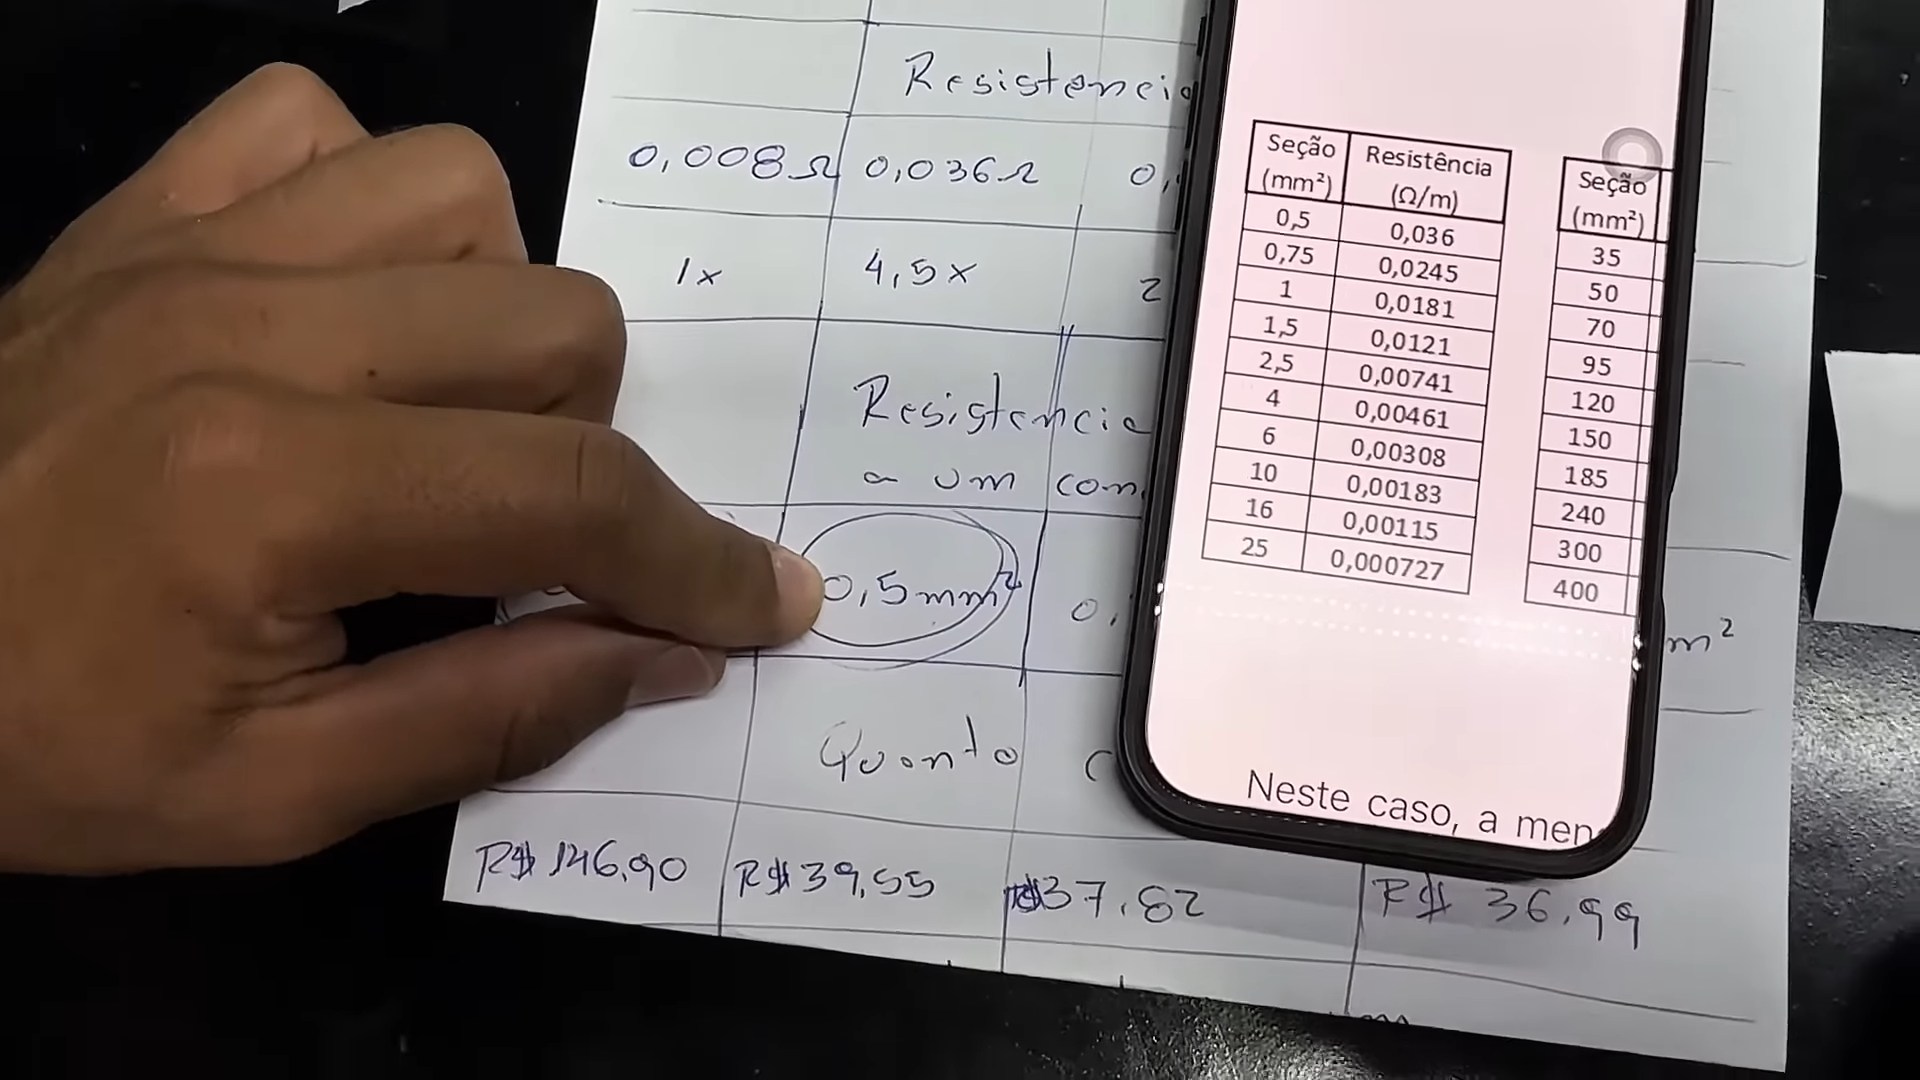 Resistencia
0,008Ω 0,036Ω 0,
1x 4,5x 2
Resistencia
a um con
0,5mm² 0,
m²
Quanto C
R$ 146,90 R$ 39,55 R$ 37,82 R$ 36,99
Seção (mm²) Resistência (Ω/m)
0,5 0,036
0,75 0,0245
1 0,0181
1,5 0,0121
2,5 0,00741
4 0,00461
6 0,00308
10 0,00183
16 0,00115
25 0,000727
Seção
(mm²)
35
50
70
95
120
150
185
240
300
400
Neste caso, a men